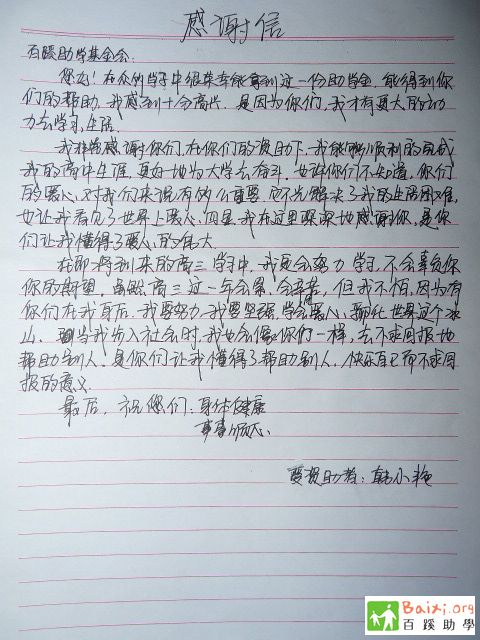 感谢信
百蹊助学基金会:
您好!在众的学子中很荣幸能拿到这一份助学金,能得到你
们的帮助,我感到十分高兴,是因为你们,我才有更大的动
力去学习,生活.
我非常感谢你们,在你们的资助下,我能够顺利的完成
我的高中生涯,更好地为大学去奋斗.也许你们不知道,你们
的爱心,对我们来说有何么重要,它不光解决了我的生活困难,
也让我看见了世界上爱心,但是,我在这里深深地感谢你,是你
们让我懂得了爱心的伟大.
在即将到来的高三学习中,我更会努力学习,不会辜负你
你的期望,虽然高三这一年会累,会辛苦,但我不怕,因为有
你们在我身后.我要努力,我要坚强,学会用爱心,融化世界这个冰
山.到当我步入社会时,我也会像你们一样,去不求回报地
帮助别人,是你们让我懂得了帮助别人,快乐自己而不求回
报的意义.
最后,祝您们:身体健康
事事顺心
受资助者:韩小艳
Baixi.org
百蹊助學